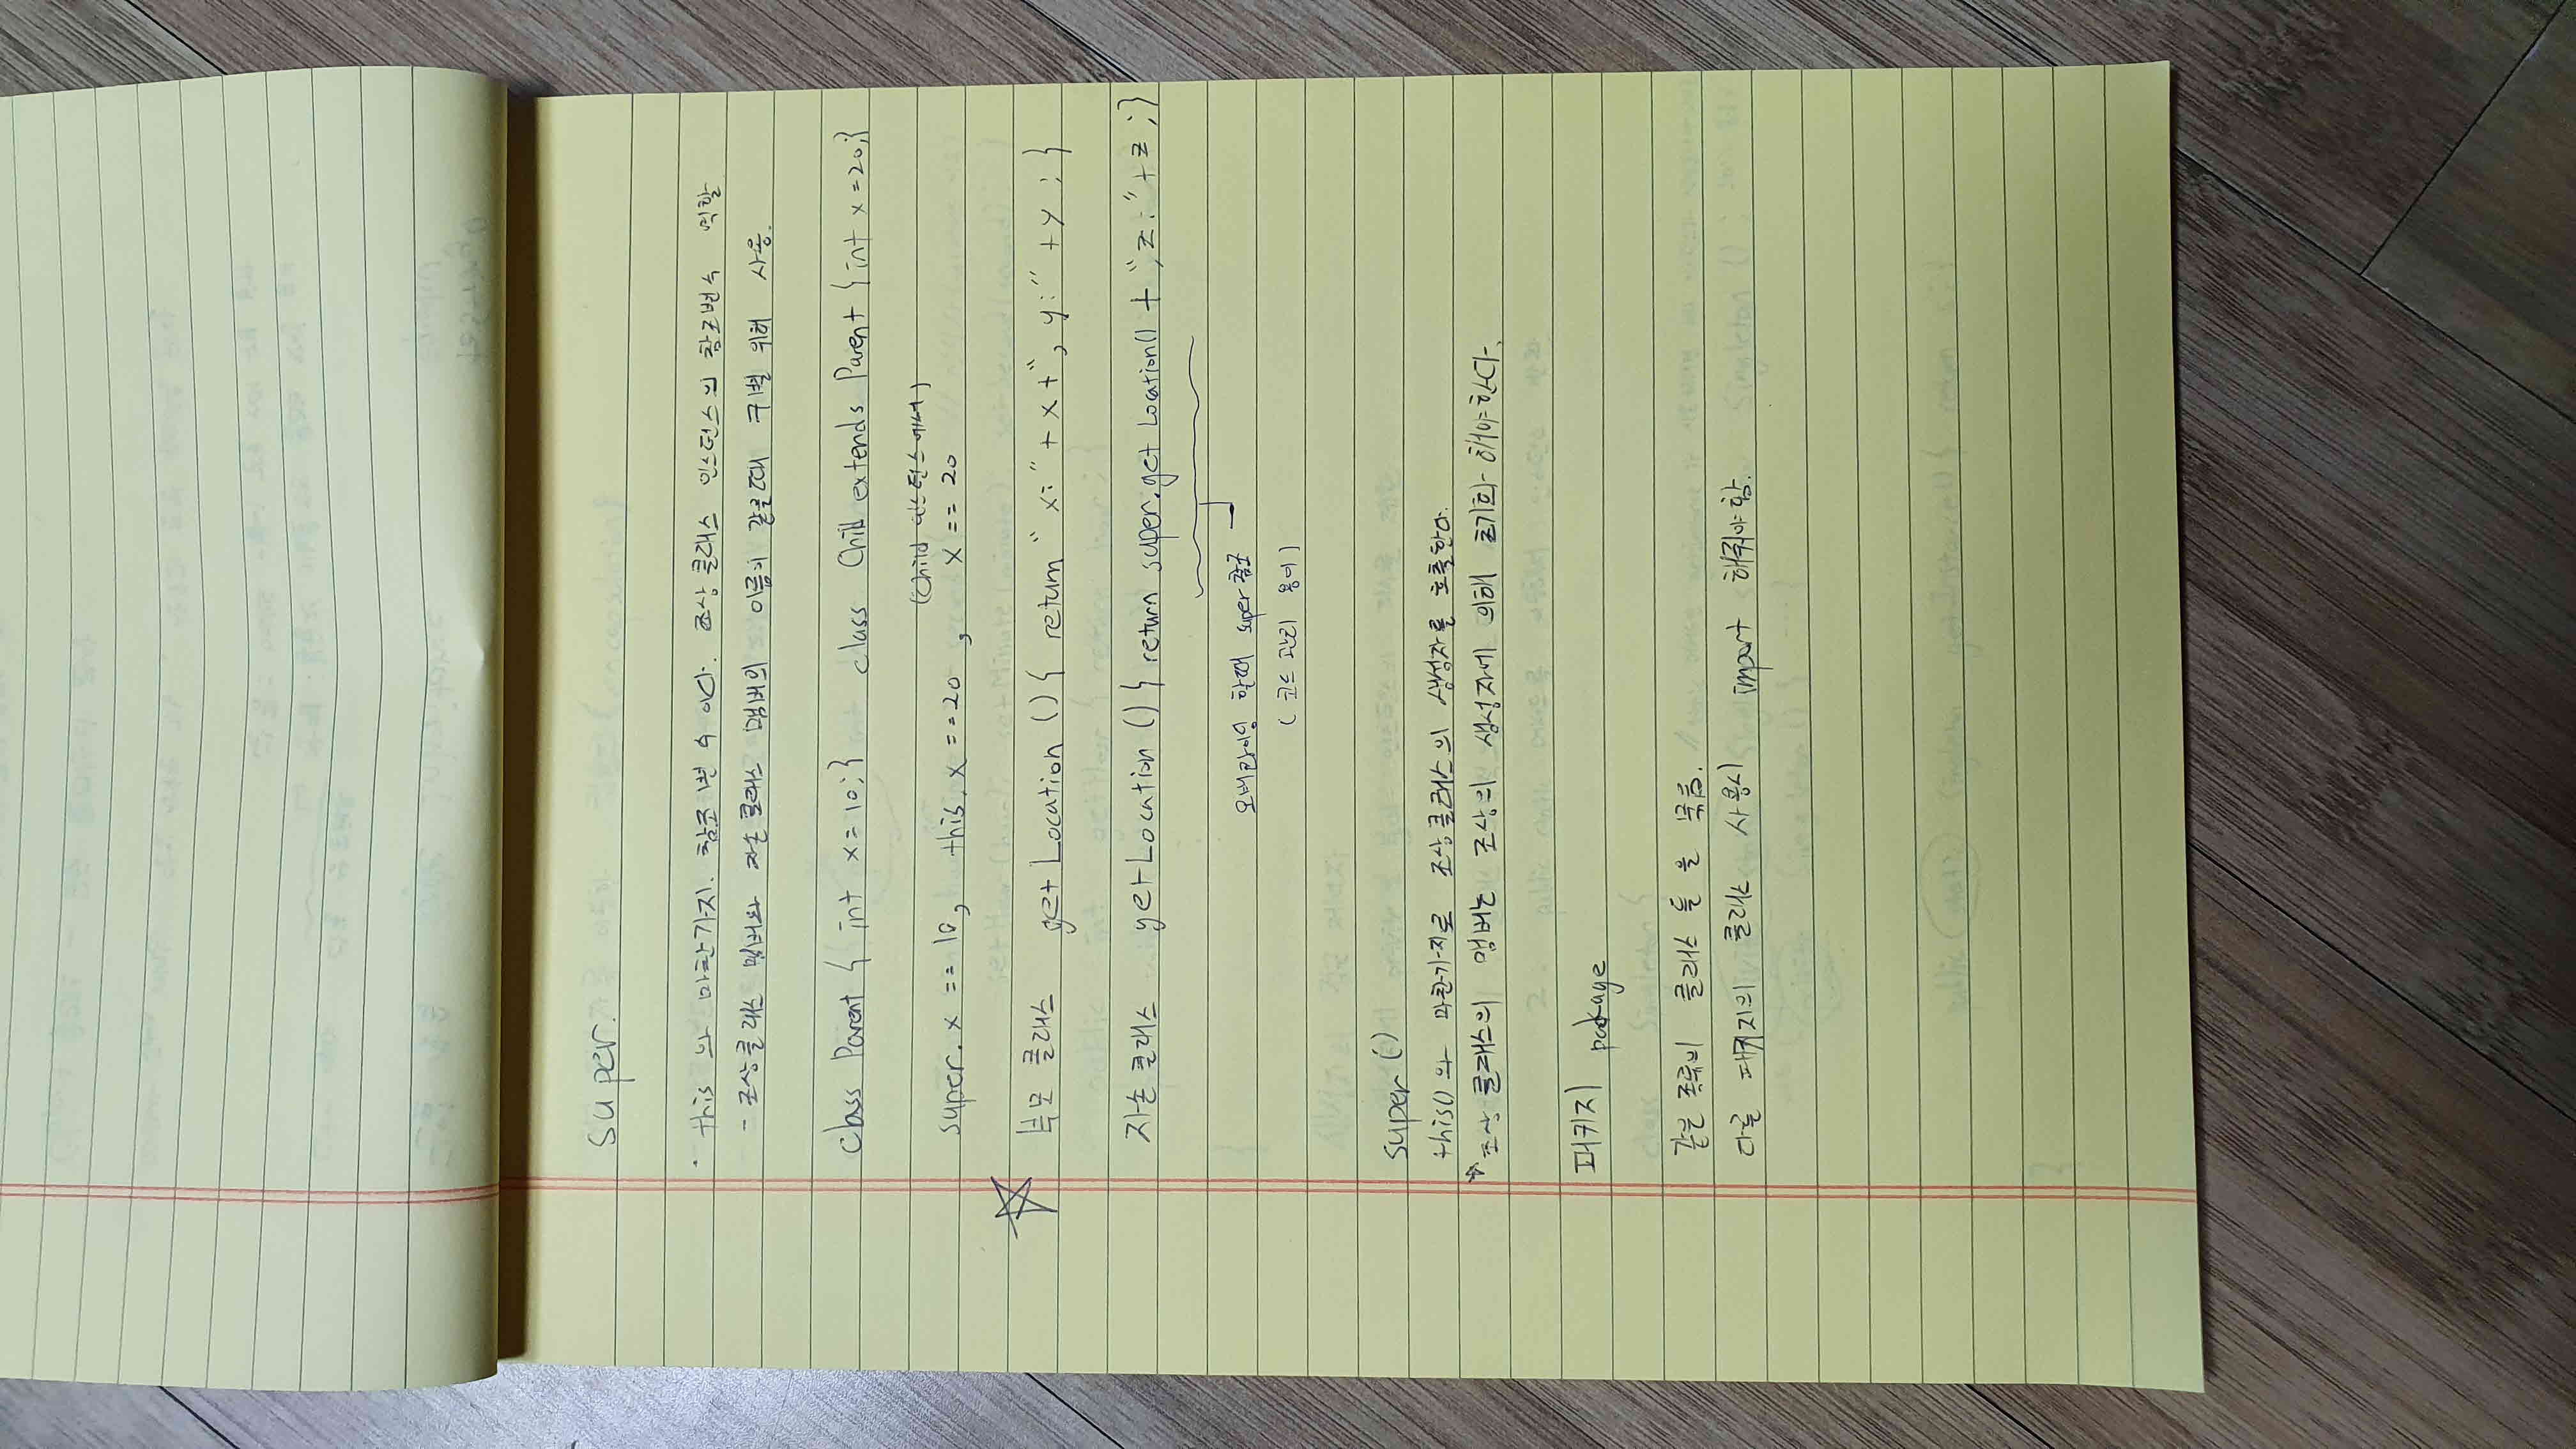 super.
· this 와 마찬가지. 참조변수 이다. 조상클래스 인스턴스의 참조변수 역할
- 조상클래스 멤버와 자손클래스 멤버의 이름이 같을때 구별 위해 사용.
class Parent { int x=10;} class Child extends Parent {int x=20;}
(Child 인스턴스에서)
super.x == 10, this.x ==20 , x == 20
부모 클래스 get Location () { return " x:" + x +", y:" + y ; }
자손 클래스 getLocation () { return super.get Location() + ",z:" + z ;}
오버라이딩 할때 super 참조
( 코드 관리 용이 )
super ()
this() 와 마찬가지로 조상클래스의 생성자를 호출한다.
→ 조상 클래스의 맴버는 조상의 생성자에 의해 초기화 해야한다.
패키지 package
같은 종류의 클래스 들 을 묶음.
다를 패키지의 클래스 사용시 import 해줘야 함.